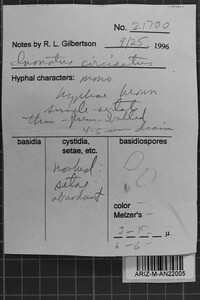 No. 21700
Notes by R. L. Gilbertson 9/25 1996
Inonotus circinatus
Hyphal characters: mono
hyphae brown
simple-septate
thin - firm-walled
4-5 um diam
basidia
cystidia, setae, etc.
basidiospores
hooked
setae
abundant
color –
Melzer's –
μ
ARIZ-M-AN22005